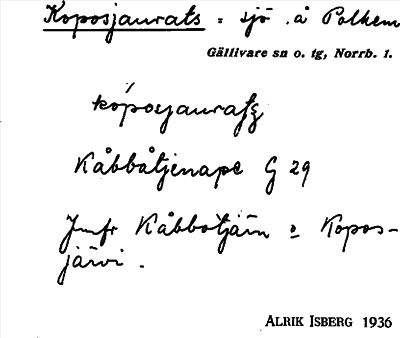 Koposjaurats = sjö å Polhem
Gällivare sn o. tg, Norrb. l.
kóposjauratş
Kåbbåtjenape G 29
Jmfr Kåbbotjärn o Kopos-
järvi.
ALRIK ISBERG 1936